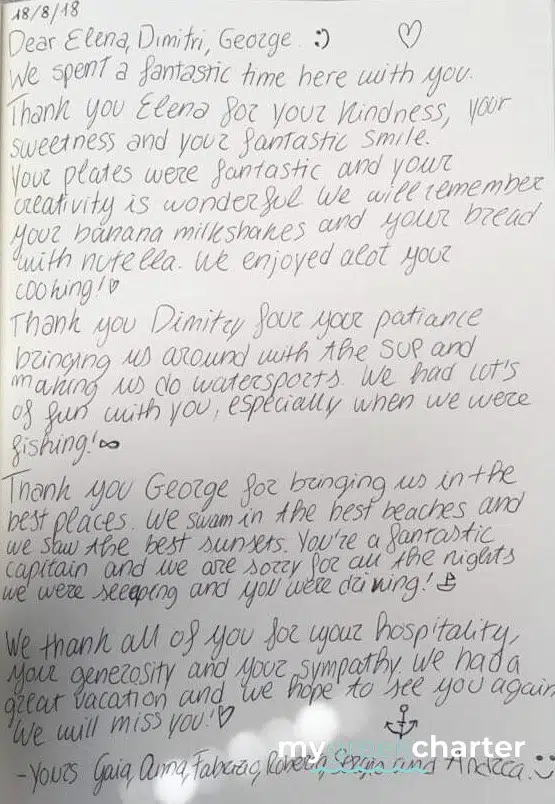 18/8/18
Dear Elena, Dimitri, George :) ♡
We spent a fantastic time here with you.
Thank you Elena for your kindness, your
sweetness and your fantastic smile.
Your plates were fantastic and your
creativity is wonderful We will remember
your banana milkshakes and your bread
with nutella. We enjoyed alot your
cooking!♡
Thank you Dimitry four your patiance
bringing us around with the SUP and
making us do watersports. We had lot's
of fun with you, especially when we were
fishing!∞
Thank you George for bringing us in the
best places. We swam in the best beaches and
we saw the best sunsets. You're a fantastic
capitain and we are sorry for all the nights
we were seeeping and you were driving!
We thank all of you for your hospitality,
your generosity and your sympathy. We had a
great vacation and we hope to see you again
We will miss you!♡
my greek charter
-Yours Gaia, Anna, Fabrizio, Roberta, Sergio and Andrea. :)